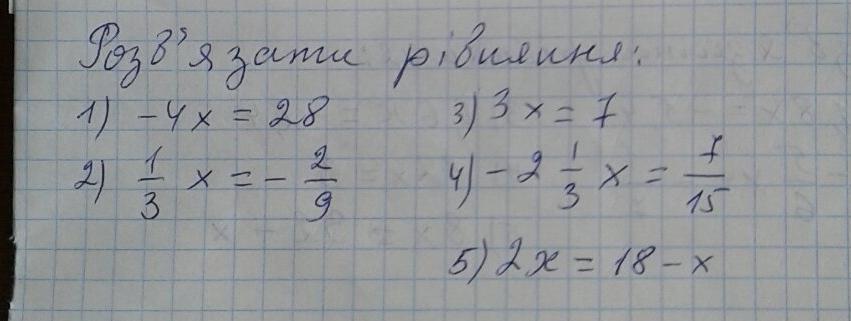 Розв'язати рівняння:
1) -4x = 28
3) 3x = 7
2) 1/3 x = - 2/9
4) -2 1/3 x = 7/15
5) 2x = 18 - x